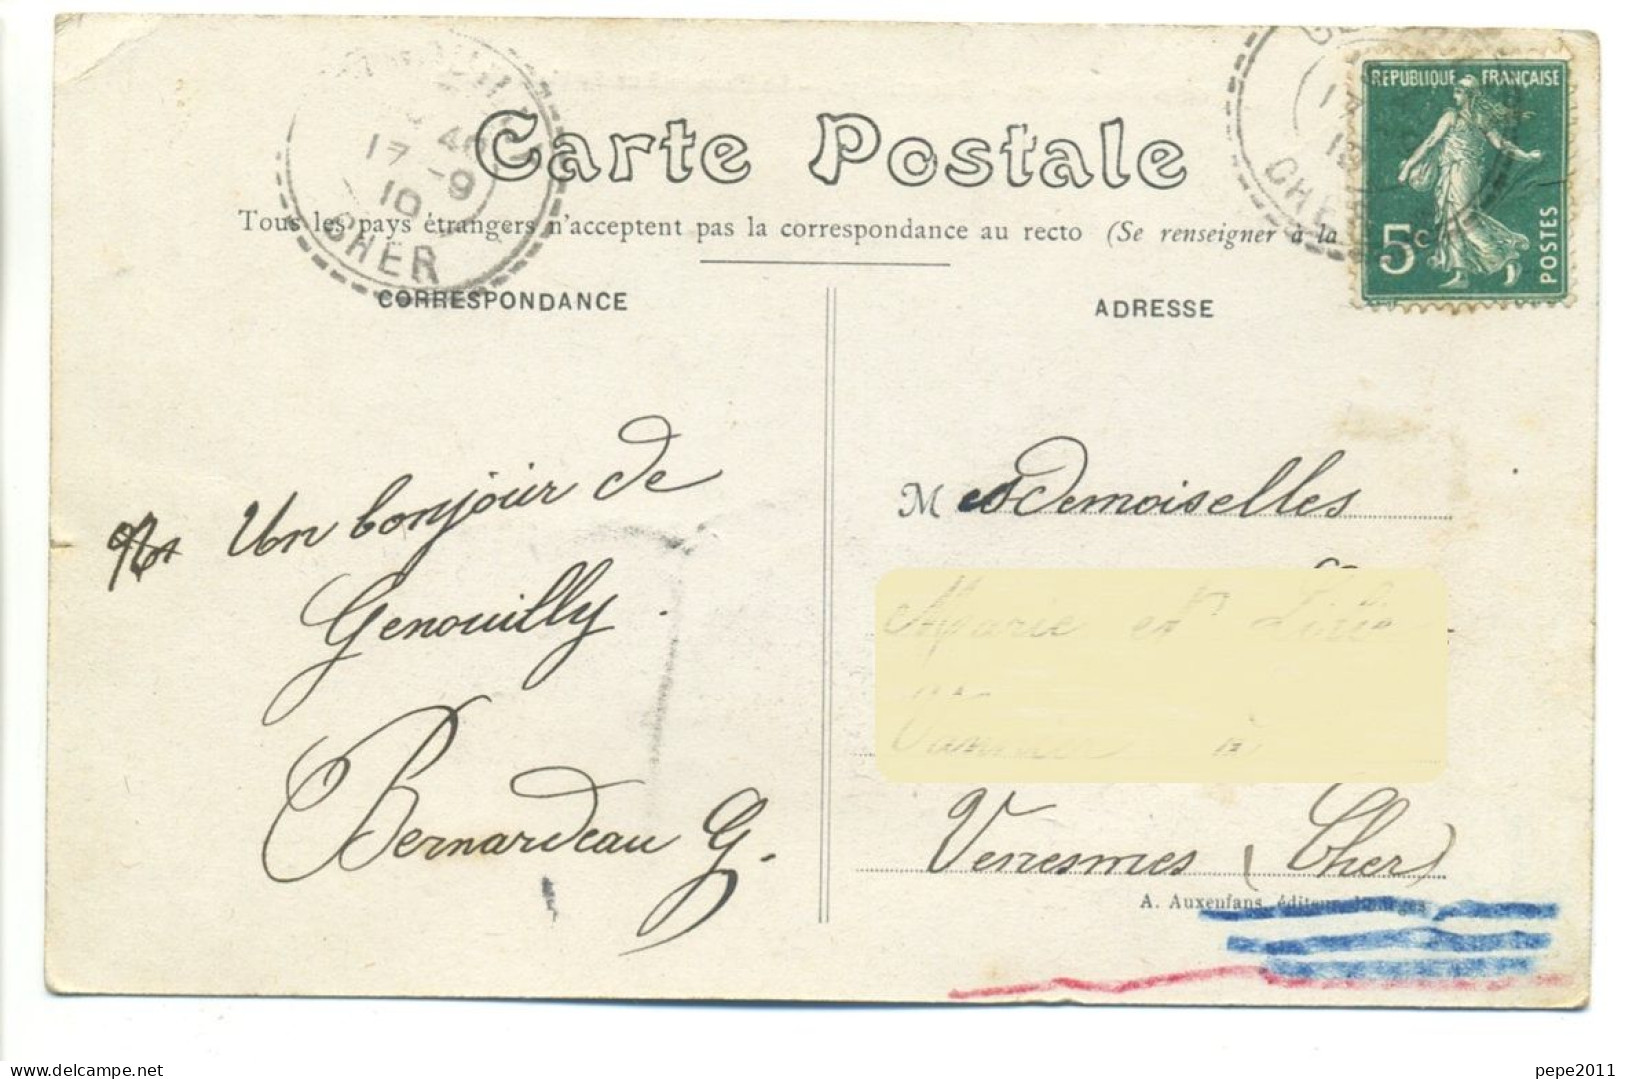 Carte Postale
Tous les pays étrangers n'acceptent pas la correspondance au recto (Se renseigner à la
CORRESPONDANCE
ADRESSE
REPUBLIQUE FRANÇAISE
5c
POSTES
17-9
10
CHER
17
CHER
Un bonjour de
Genouilly.
Bernardeau G.
Mesdemoiselles
Marie et
à
Verresmes (Cher)
A. Auxenfans, éditeur, Bourges
www.delcampe.net
pepe2011